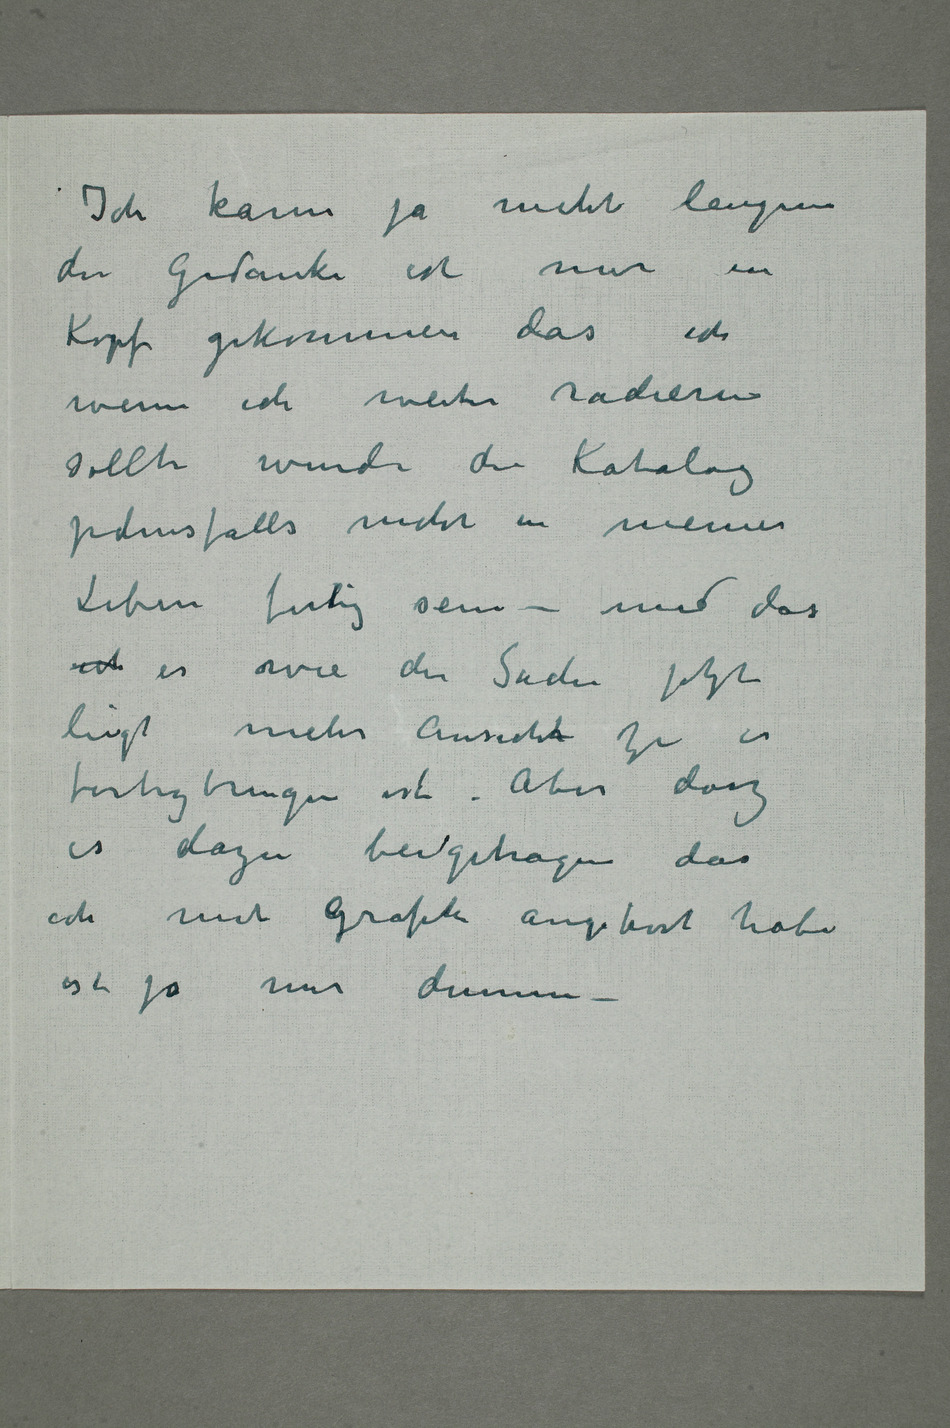 Ich kann ja nicht leugnen
der Gedanke ist mir in
Kopf gekommen das ich
wenn ich weiter radieren
sollte wurde der Katalog
jedensfalls nicht in meiner
Leben fertig sein – und das
ist es wie die Sache jetzt
liegt mehr Aussicht zu es
fertigbringen ist. Aber dasz
es dazu beigetragen das
ich mit Grafik angehört habe
ist ja nur dumm –